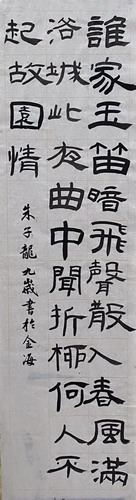 誰家玉笛暗飛聲散入春風滿
洛城此夜曲中聞折柳何人不
起故園情
朱子龍九歲書於金海